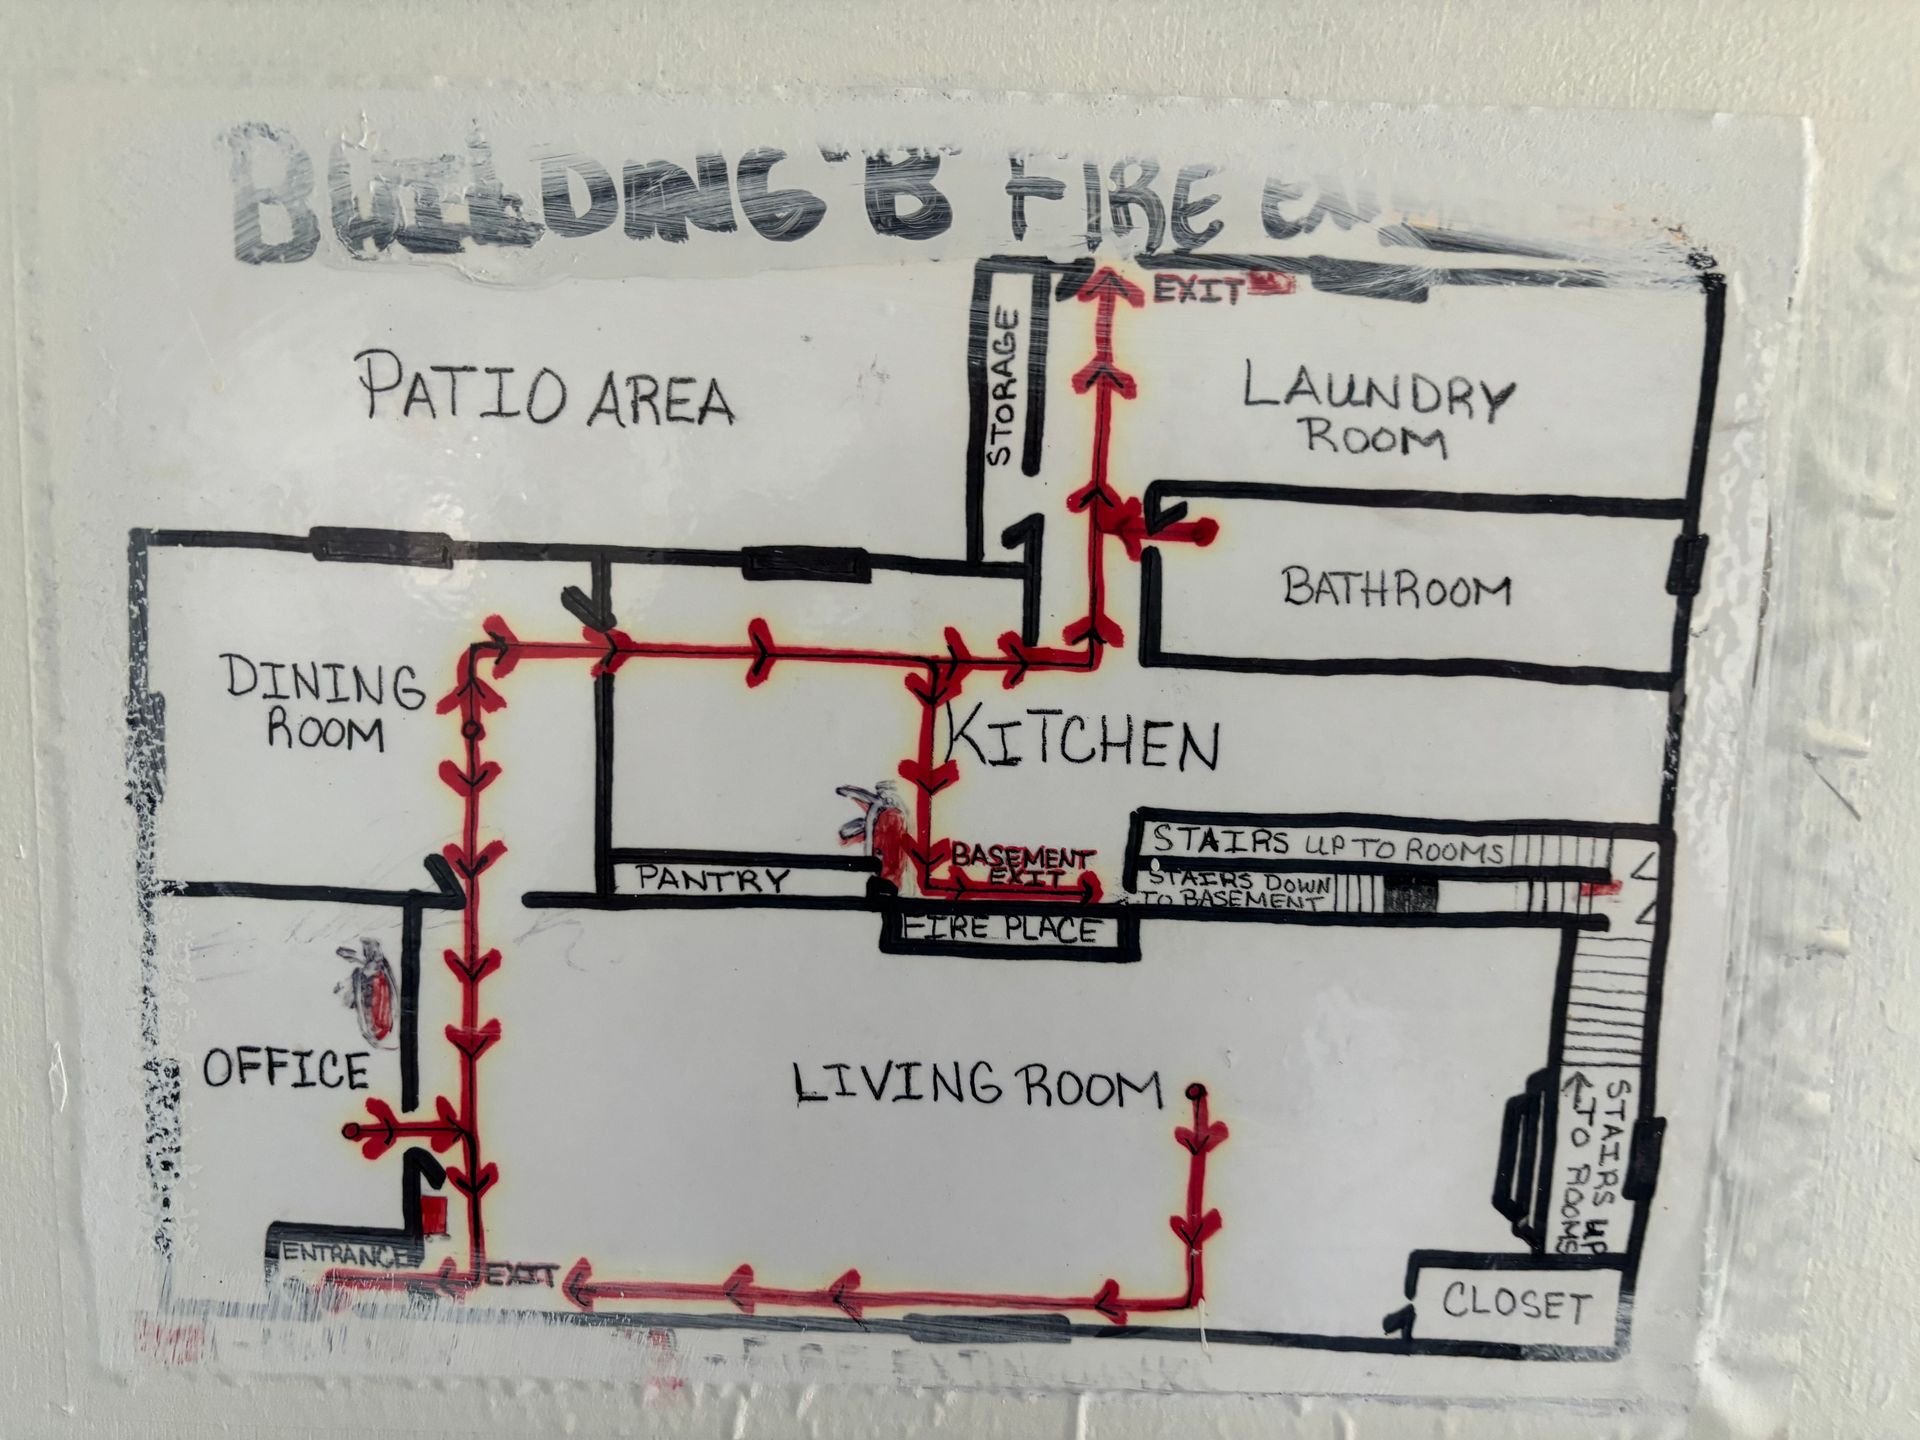 BUILDING "B" FIRE
EXIT
STORAGE
PATIO AREA
LAUNDRY
ROOM
BATHROOM
DINING
ROOM
KITCHEN
STAIRS UP TO ROOMS
BASEMENT
EXIT
PANTRY
STAIRS DOWN
TO BASEMENT
FIRE PLACE
OFFICE
LIVING ROOM
STAIRS UP
TO ROOMS
ENTRANCE
EXIT
CLOSET
- FIRE